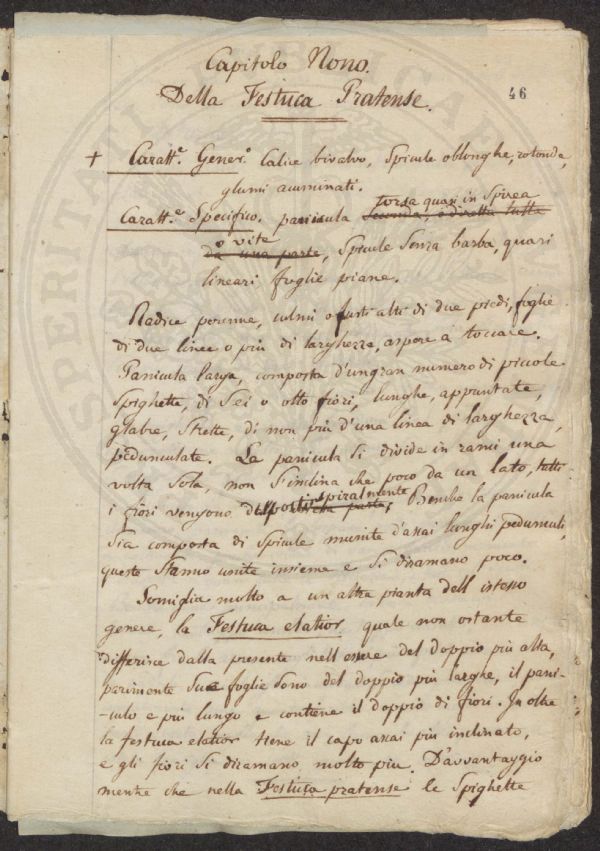 Capitolo Nono.
Della Festuca Pratense.
46
+ Caratt.e Gener.o Calice bivalvo, Spicule oblonghe, rotonde,
glumi acuminati.
torsa quasi in Spirea
Caratt.e Specifico. panicula seconda, e diretta tutta
o vite
da una parte, Spicule Senza barba, quasi
lineari foglie piane.
Radice perenne, culmi o fusti alti di due piedi, foglie
di due linee o più di larghezza, aspere à toccare.
Panicula larga, composta d'un gran numero di piccole
Spighette, di Sei o otto fiori, lunghe, appuntate,
glabre, Strette, di non più d'una linea di larghezza,
pedunculate. La panicula Si divide in rami una
volta Sola, non S'inclina che poco da un lato, tutti
spiralmente
i fiori vengono disposti parte. Benche la panicula
Sia composta di Spicule munite d'assai lunghi peduncoli,
queste Stanno unite insieme e Si diramano poco.
Somiglia molto a un altra pianta dell' istesso
genere, la Festuca elatior quale non ostante
differisce dalla presente nell' essere del doppio più alta,
parimente Sue foglie Sono del doppio più larghe, il pani-
-culo e più lungo e contiene il doppio di fiori. In oltre
la festuca elatior tiene il capo assai più inclinato,
e gli fiori Si diramano molto piu. D'avvantaggio
mentre che nella Festuca pratense le Spighette